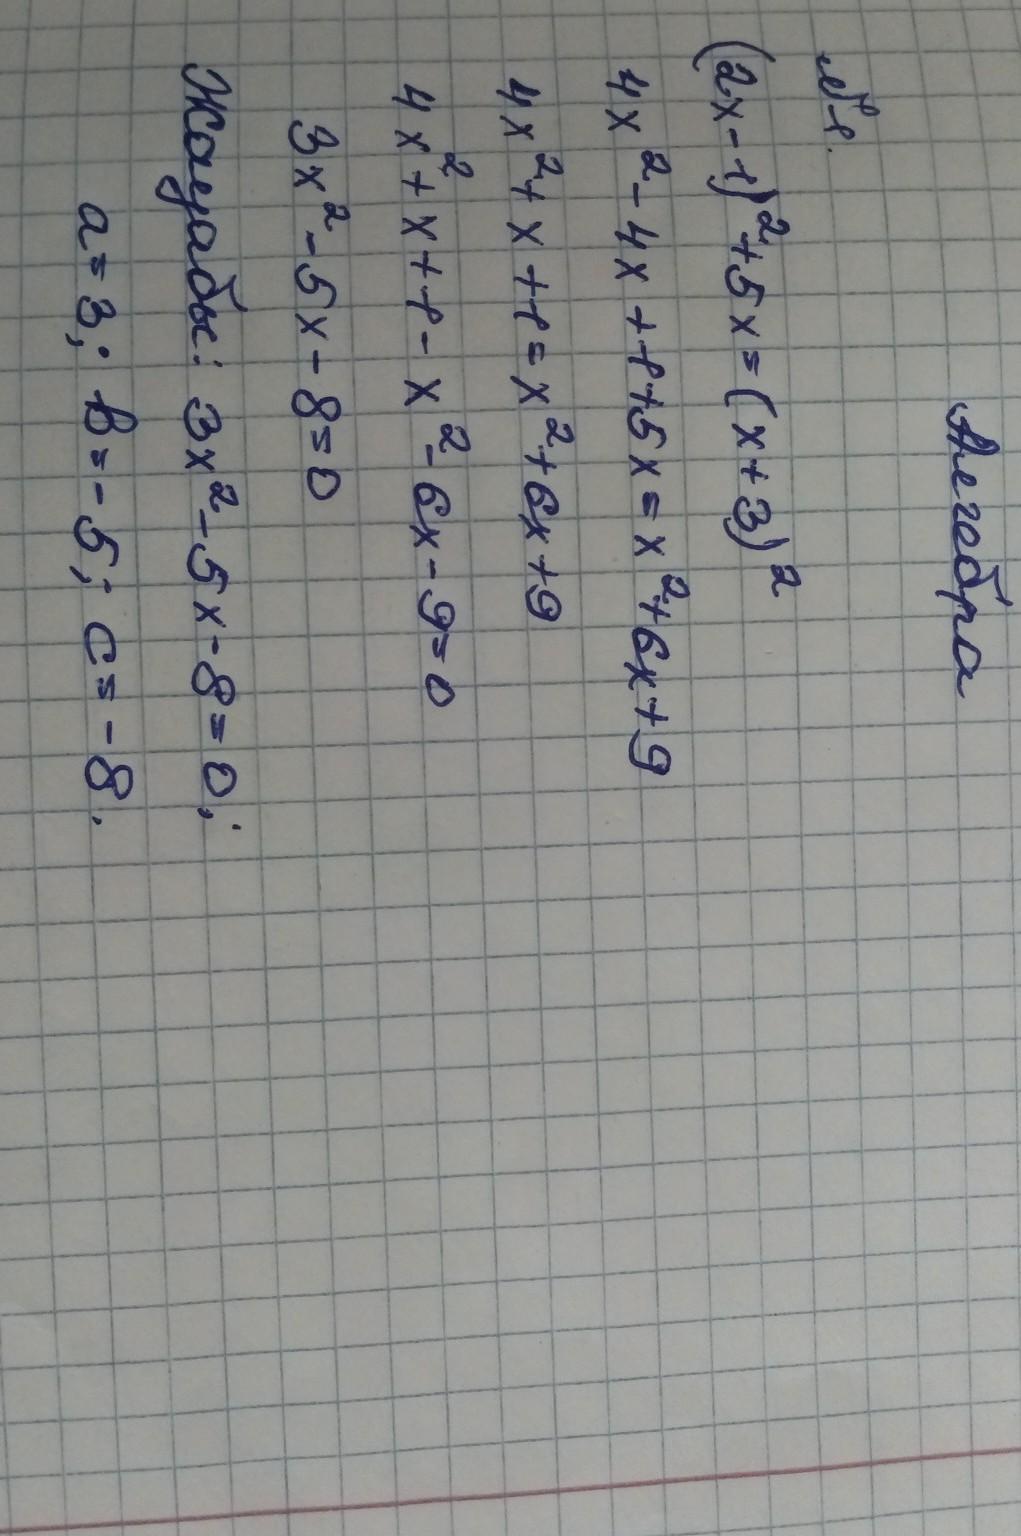 Алгебра
№1.
(2x-1)²+5x=(x+3)²
4x²-4x+1+5x=x²+6x+9
4x²+x+1=x²+6x+9
4x²+x+1-x²-6x-9=0
3x²-5x-8=0
Жауабы: 3x²-5x-8=0;
a=3; b=-5; c=-8.